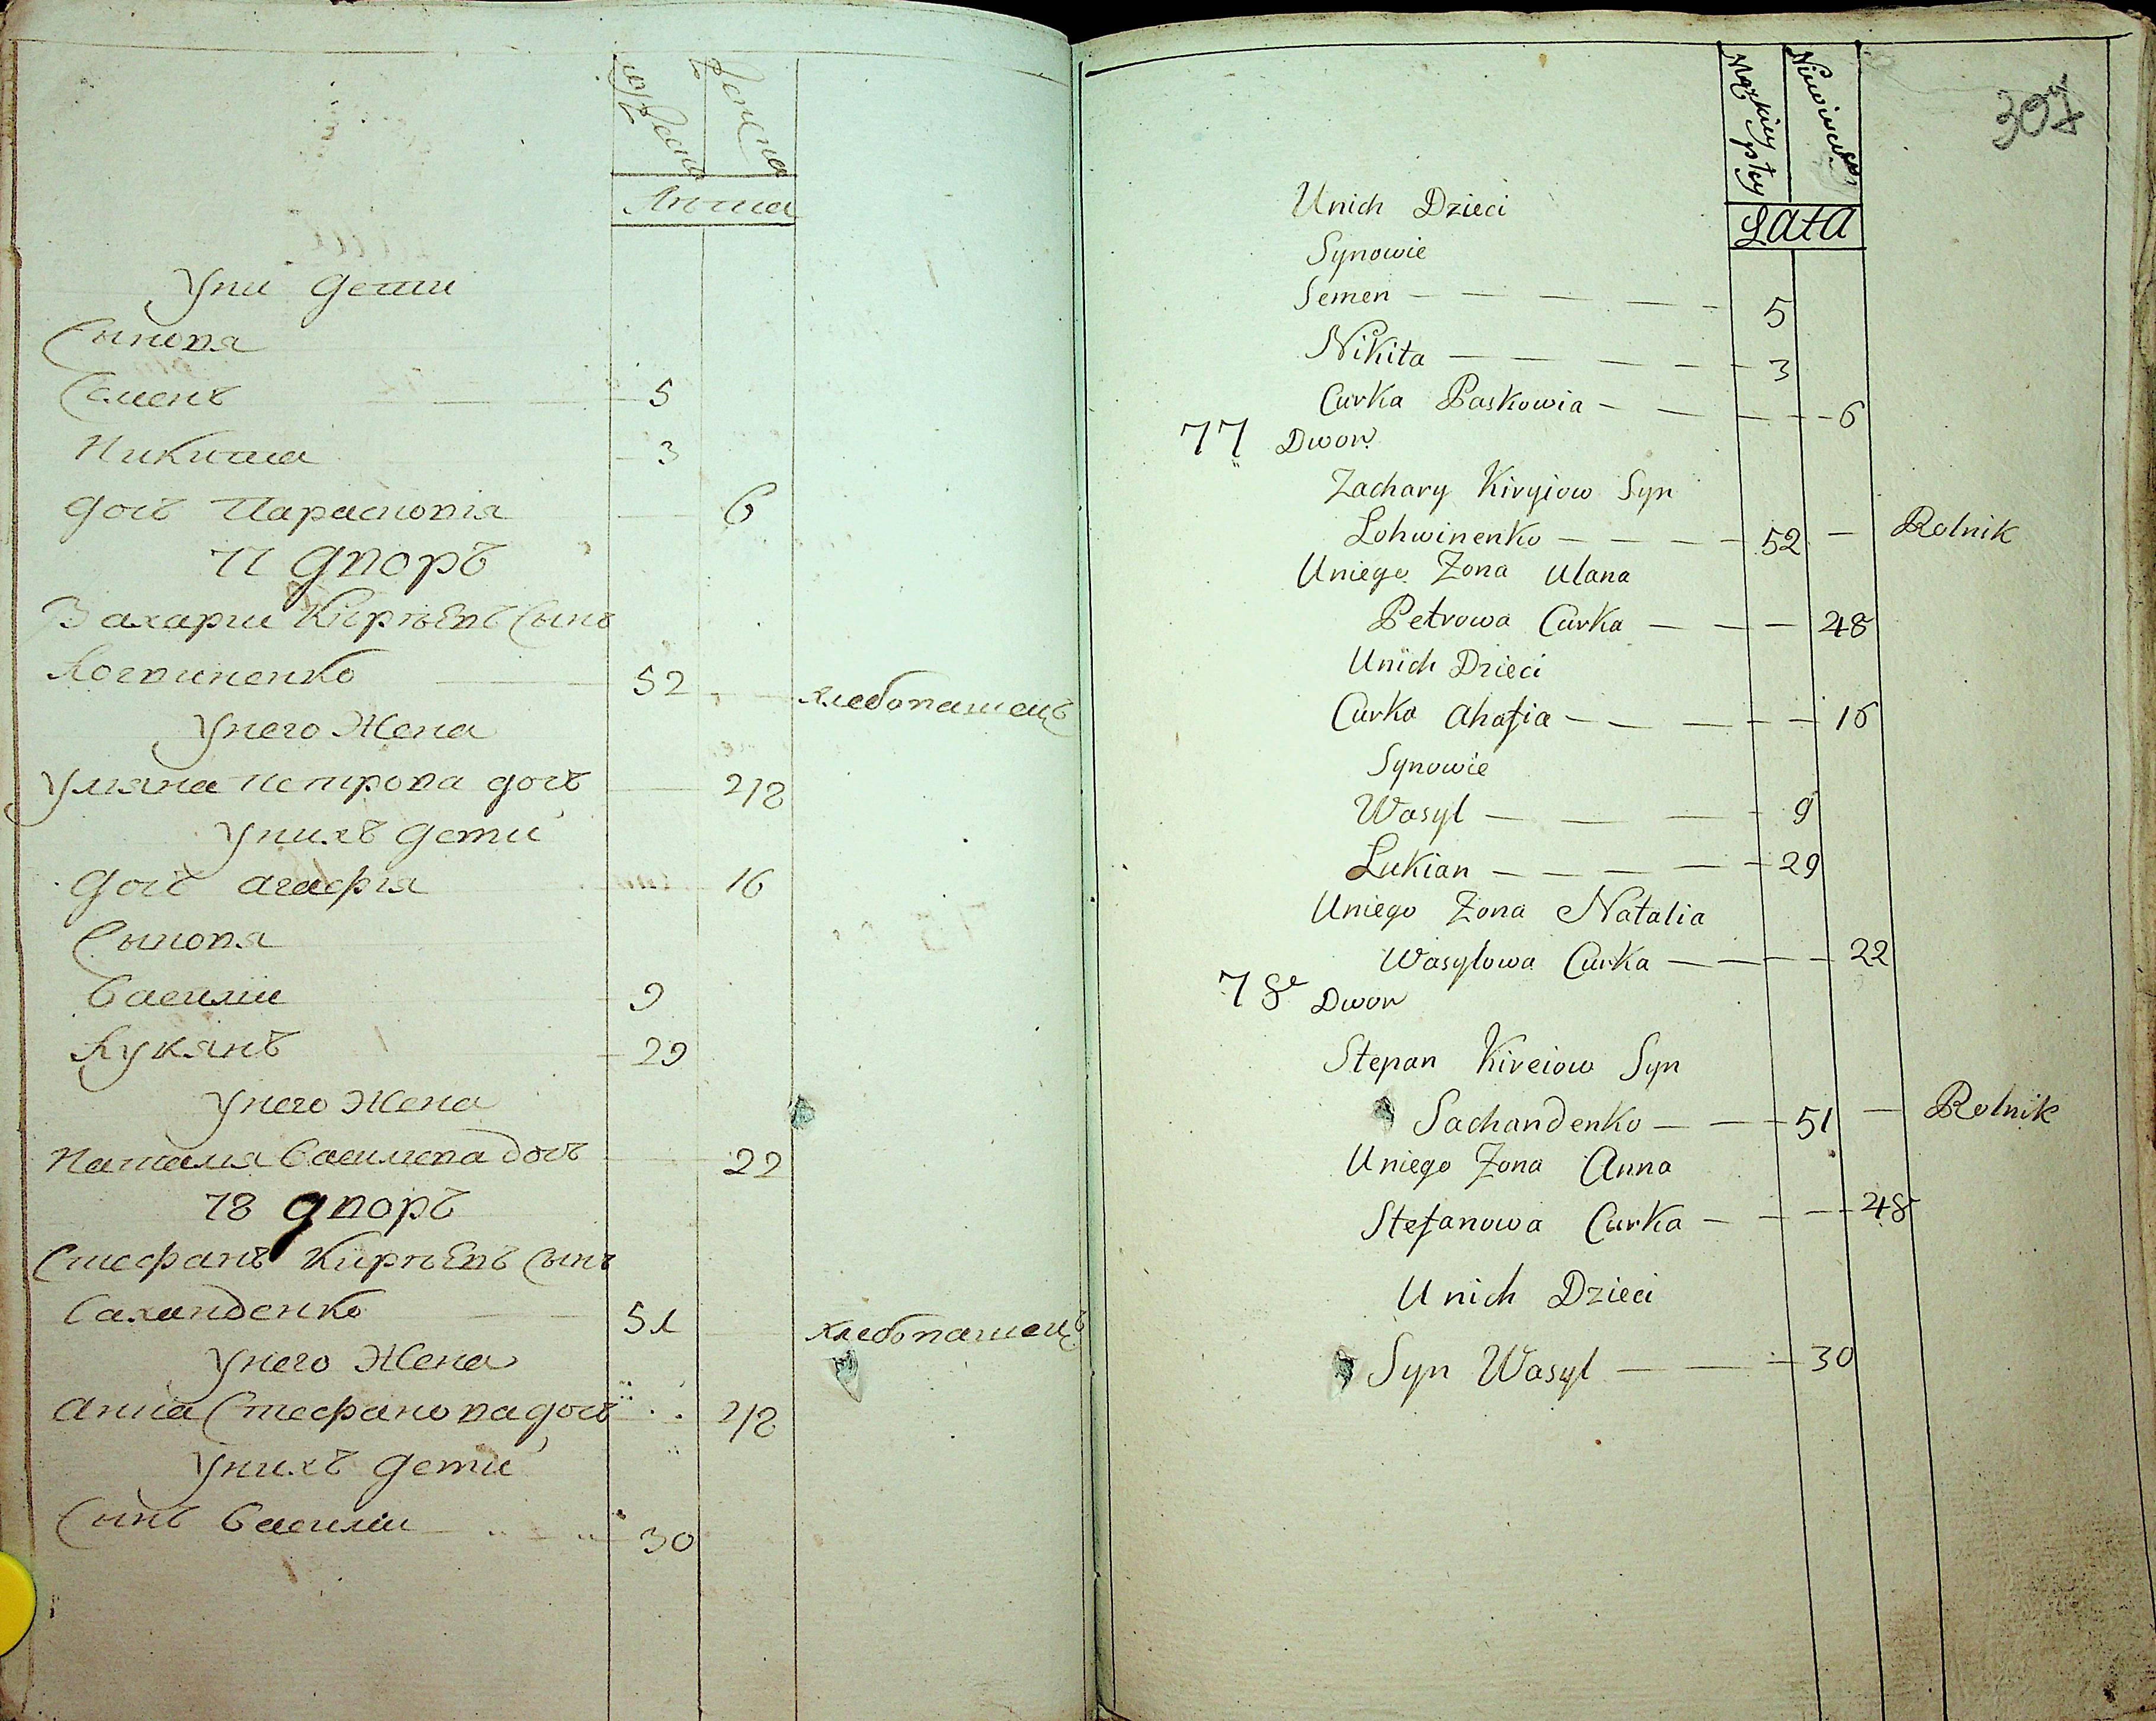 Женска
Лѣта
Уни дети
Сынова
Семенъ 5
Никита 3
дочь Парасковія 6
77 дворъ
Захарии Кирѣевъ Сынъ
Логвиненко 52 хлебопашецъ
Унего Жена
Уляна петрова дочъ 48
Унихъ дети
дочъ агафія 16
Сынова
Василии 9
Лукянъ 29
Унего Жена
Наталя Василева дочъ 22
78 дворъ
Стефанъ Кирѣевъ Сынъ
Саханденко 51 хлебопашецъ
Унего Жена
анна Стефанова дочъ 48
Унихъ дети
Сынъ Василии 30
307
Męzkiey płcy
Lata
Unich Dzieci
Synowie
Semen 5
Nikita 3
Curka Paskowia 6
77 Dwor
Zachary Kiryiow Syn
Lohwinenko 52 Rolnik
Uniego Zona Ulana
Petrowa Curka 48
Unich Dzieci
Curka Ahafia 16
Synowie
Wasyl 9
Lukian 29
Uniego Zona Natalia
Wasylowa Curka 22
78 Dwor
Stepan Kireiow Syn
Sachandenko 51 Rolnik
Uniego Zona Anna
Stefanowa Curka 48
Unich Dzieci
Syn Wasyl 30